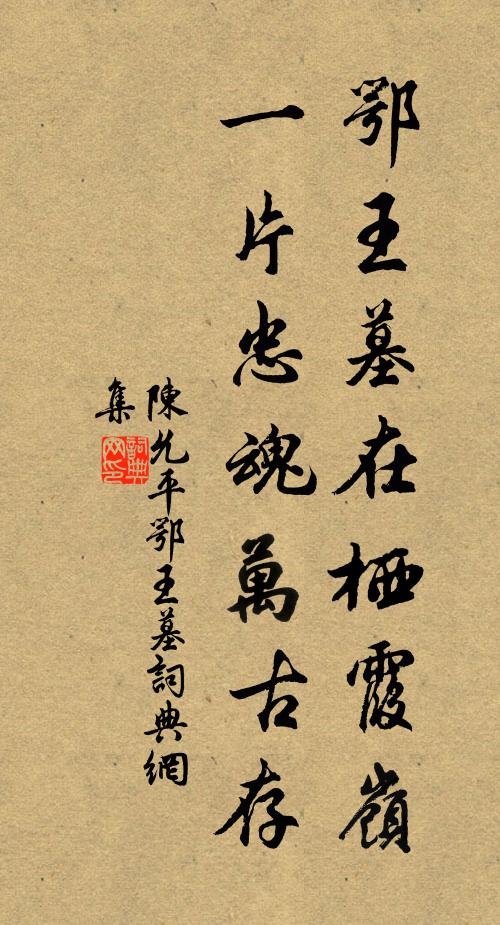 鄂王墓在栖霞嶺
一片忠魂萬古存
陳允平鄂王墓詞典網
集
詞典網印